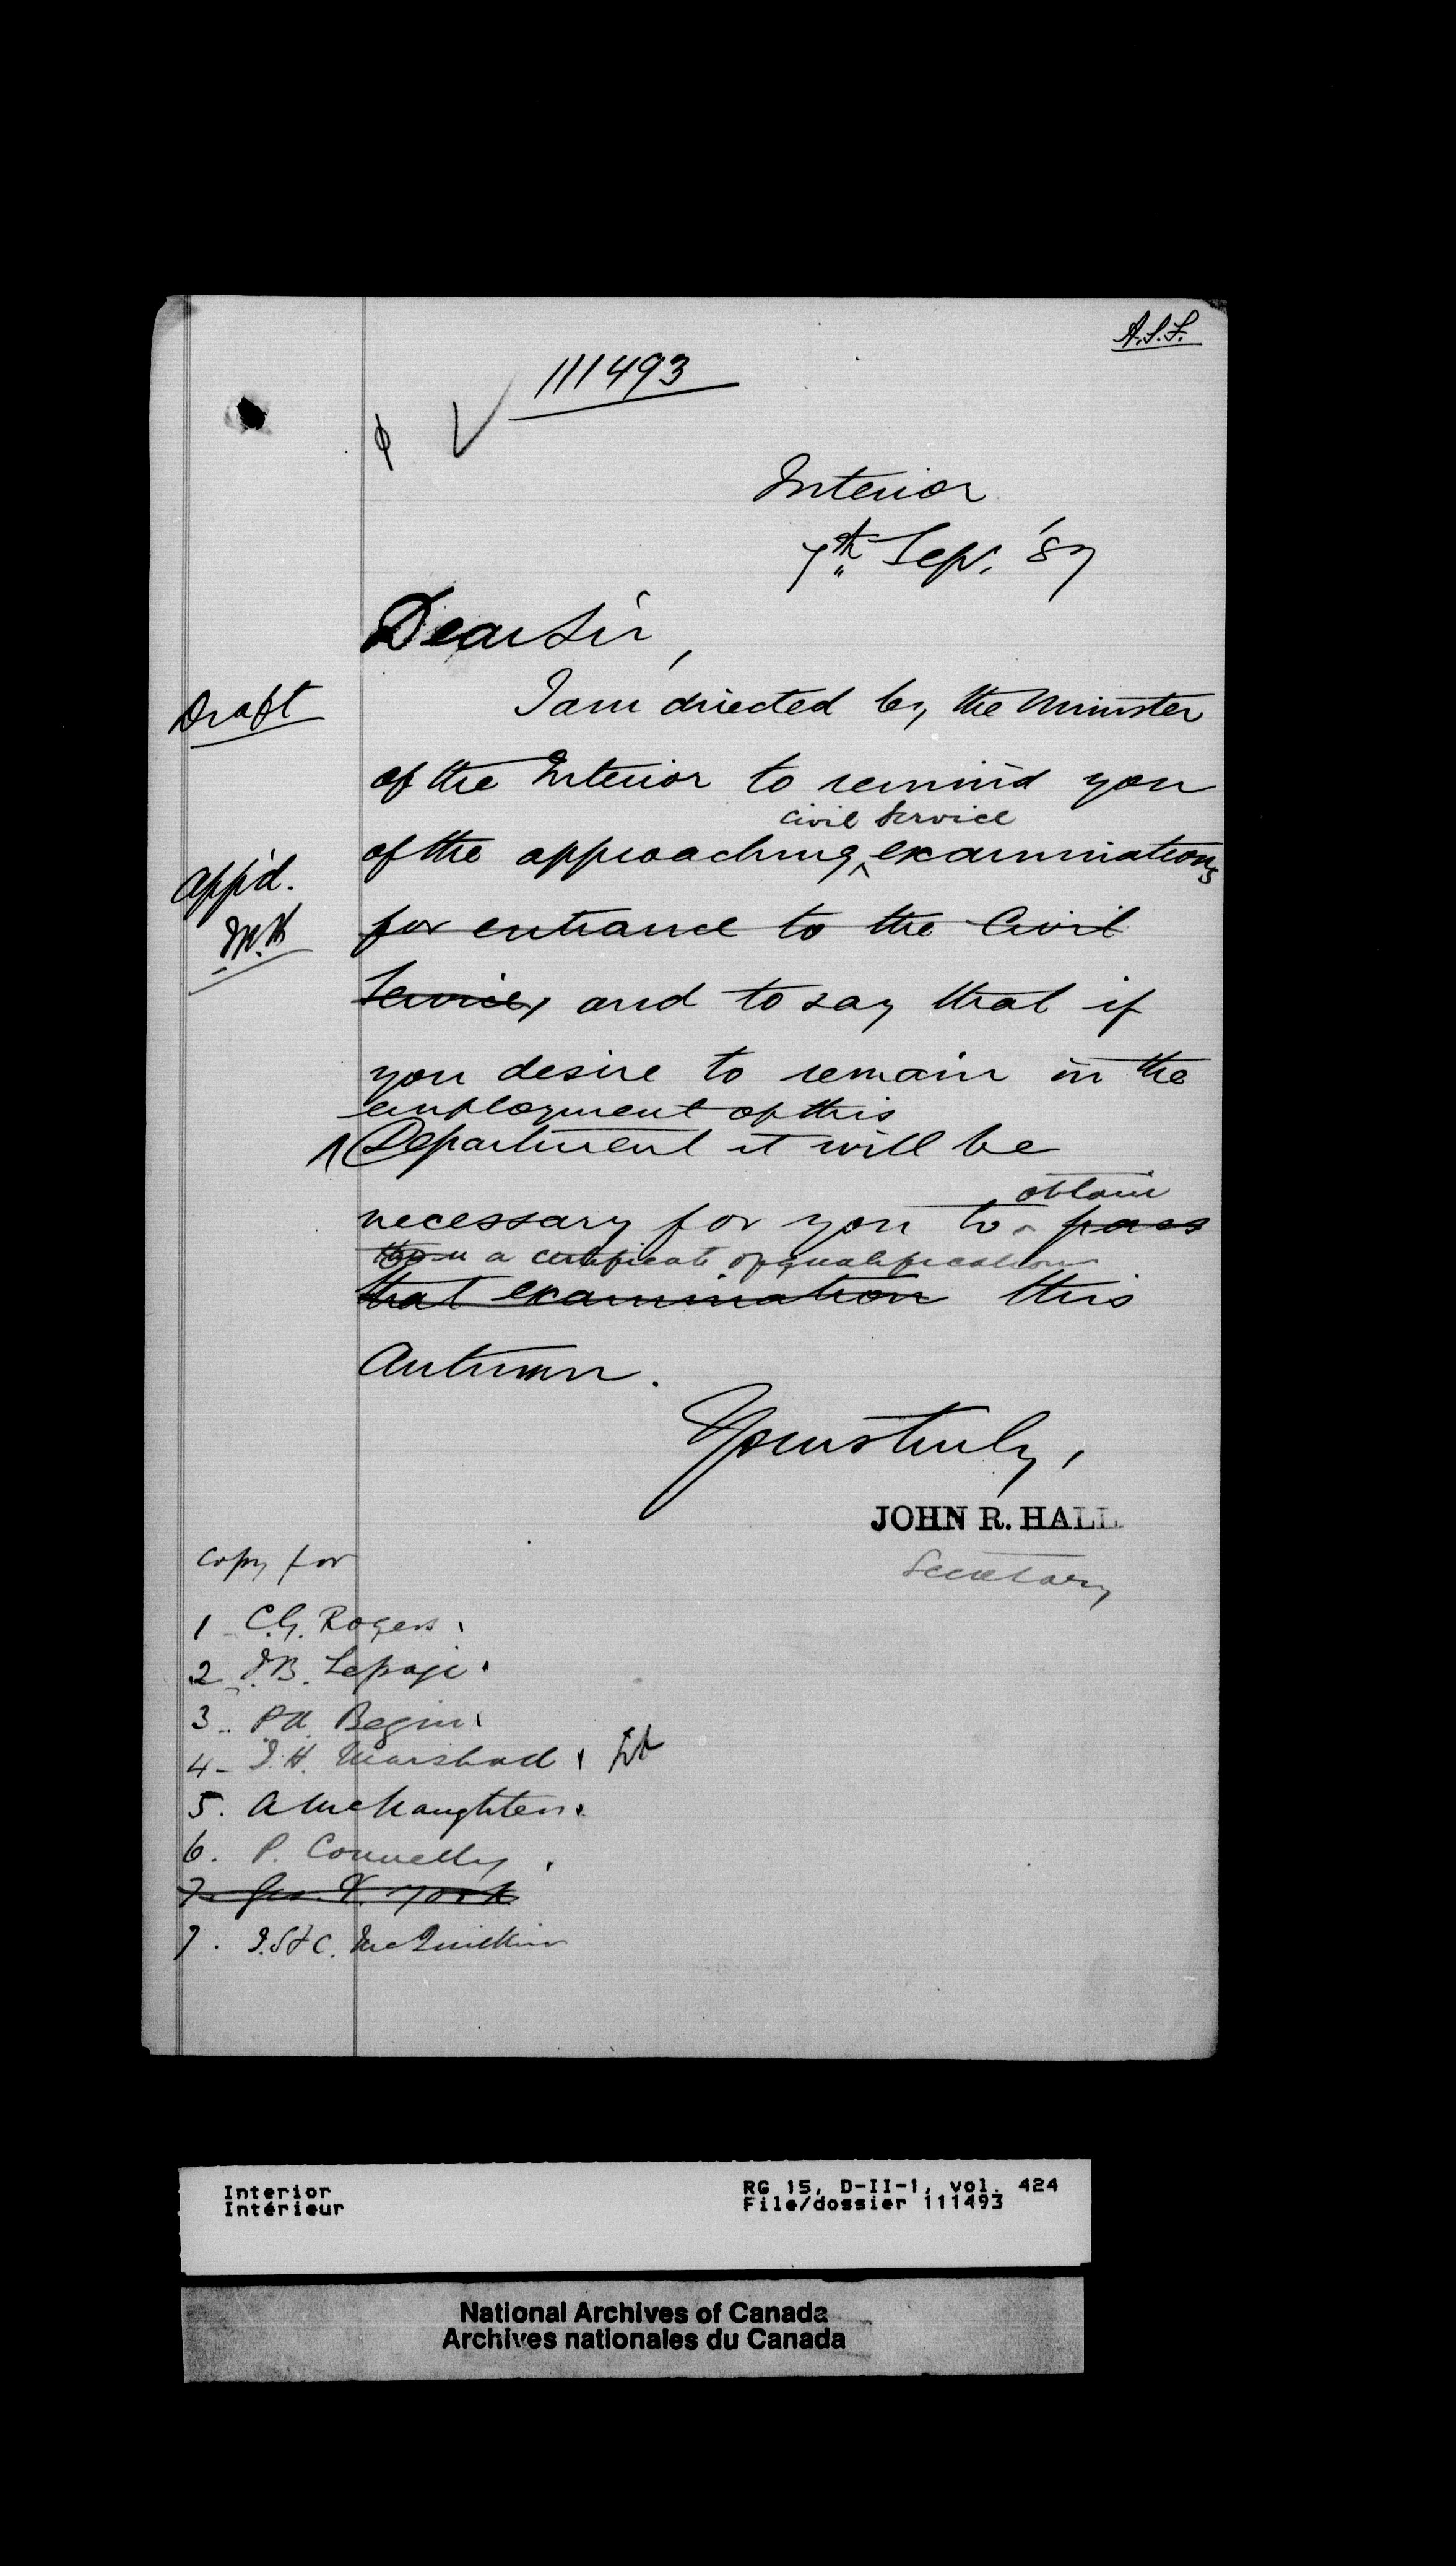 A.S.F.
111493
Interior
7th Sep. '87
Dear Sir,
Draft
I am directed by the Minister
of the Interior to remind you
civil Service
of the approaching examinations
App'd.
for entrance to the Civil
Service, and to say that if
you desire to remain in the
employment of this
Department it will be
obtain
necessary for you to pass
a certificate of qualification
that examination this
Autumn.
Yours truly,
JOHN R. HALL
Secretary
Copy for
1 - C.G. Rogers
2 - J.B. Lepage
3 - Begin
4 - J.H. Marshall
5. A McNaughten
6. P. Connelly
7. Geo. V. York
7. McQuilkin
Interior
Intérieur
RG 15, D-II-1, vol. 424
File/dossier 111493
National Archives of Canada
Archives nationales du Canada